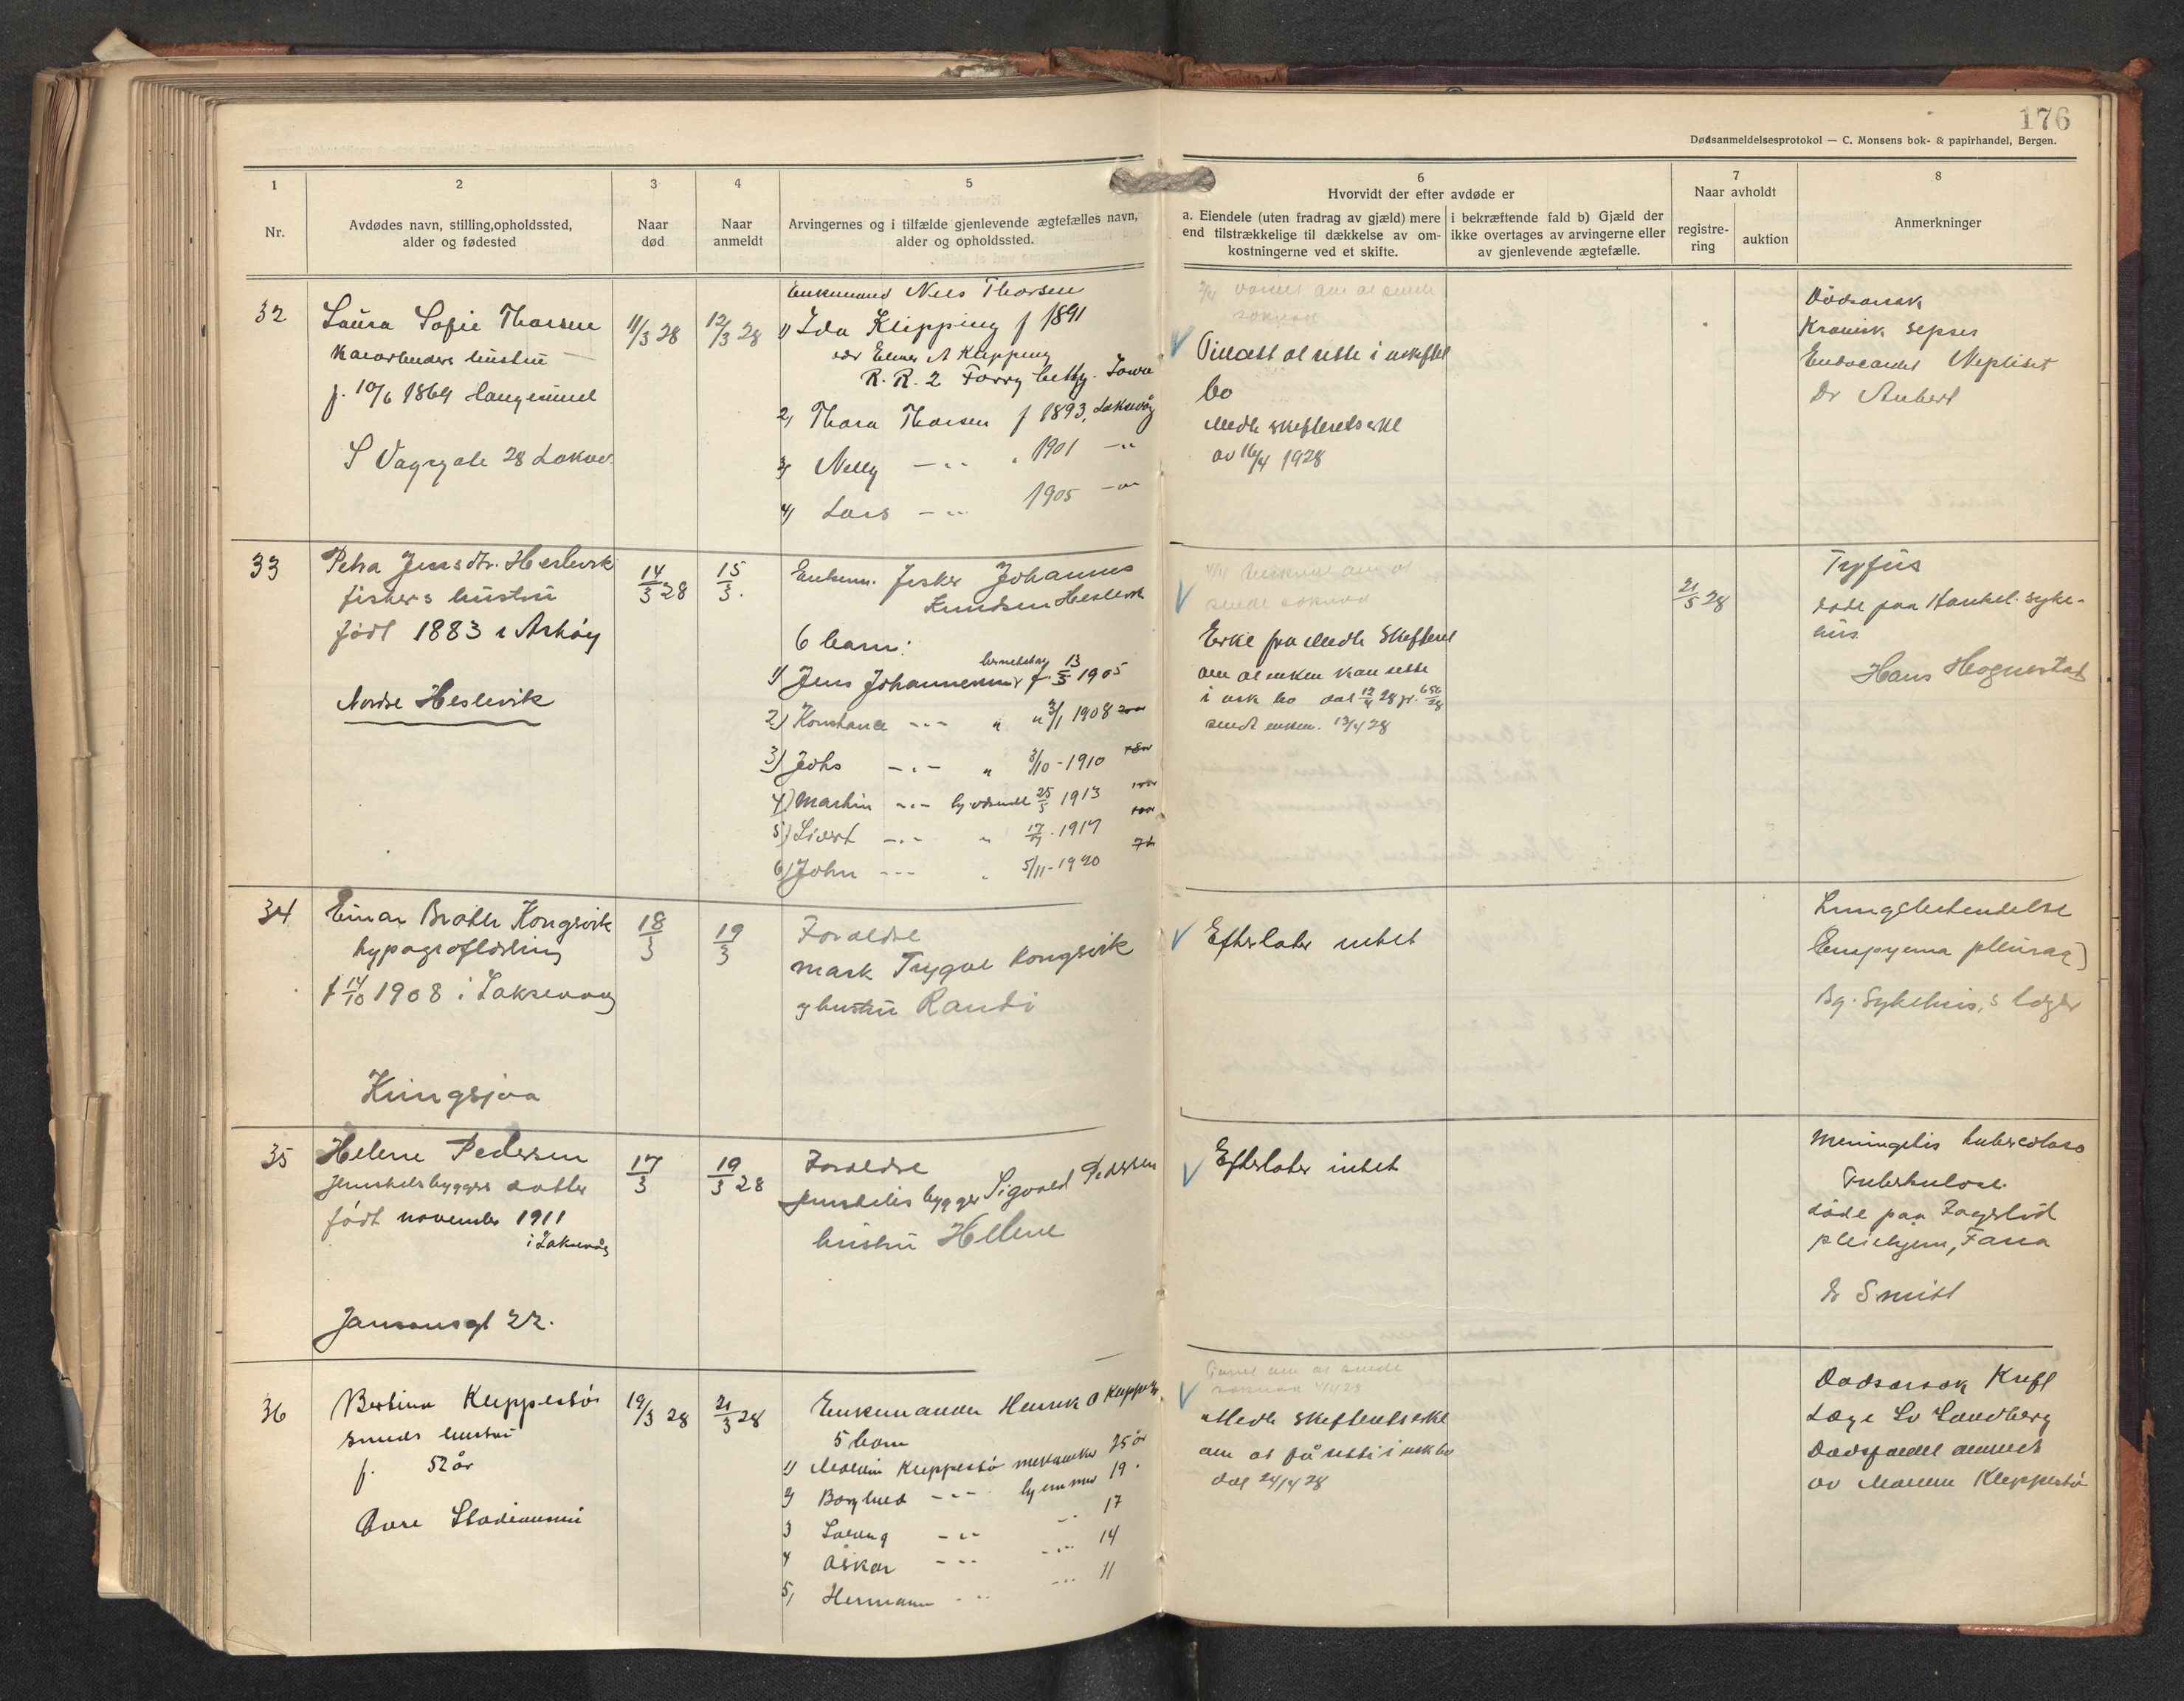 176
Dødsanmeldelsesprotokol — C. Monsens bok- & papirhandel, Bergen.
1
Nr.
2
Avdødes navn, stilling, opholdssted,
alder og fødested
3
Naar
død
4
Naar
anmeldt
5
Arvingernes og i tilfælde gjenlevende ægtefælles navn,
alder og opholdssted.
6
Hvorvidt der efter avdøde er
a. Eiendele (uten fradrag av gjæld) mere
end tilstrækkelige til dækkelse av om-
kostningerne ved et skifte.
i bekræftende fald b) Gjæld der
ikke overtages av arvingerne eller
av gjenlevende ægtefælle.
7
Naar avholdt
registre-
ring
auktion
8
Anmerkninger
32
Laura Sofie Thorsen
hustru
f. 10/6 1864 Haugesund
S Vagsgate 28 Laksev.
11/3 28
12/3 28
Enkemand Nils Thorsen
1) Ida Klipping f 1891
adr Elmer A Klipping
R. R. 2 Iowa
2) Thora Thorsen f 1893, Laksevåg
3) Nelly -"- " 1901 -"
4) Lars -"- 1905 -"
Tillatt at sitte i uskiftet
bo
Medh skifteretserkl
av 16/4 1928
Dødsarsak
Kronisk sepsis
Endocardit
Dr Aubert
33
Petra Jensdtr. Heslevik
fiskers hustru
født 1883 i Askøy
Nordre Heslevik
14/3 28
15/3.
Enkem. fisker Johannes
Knudsen Heslevik
6 barn:
1) Jens Johannessen f. 13/5 1905
2) Konstance -"- " 1908
3) Johs -"- " 3/10 - 1910
4) Martin -"- hjemme 25/5 1913
5) Sivert -"- " 1917
6) John -"- " 5/11 - 1920
Erkl fra Medh Skifteret
om at enken kan sitte
i usk bo dat 12/4 28
sendt enkem. 13/4 28
21/5 28
Tyfus
døde paa Haukel. syke-
hus
Hans Hognestad
34
Einar Brathe Kongsvik
typograflærling
f 14/10 1908 i Laksevaag
Kringsjaa
18/3
19/3
Forældre
mask Trygve Kongsvik
og hustru Randi
Efterlater intet
Lungebetendelse
Empyema pleurae)
Bg. Sykehus, s læger
35
Helene Pedersen
datter
født november 1911
i Laksevåg
Jansonsgt 22.
17/3
19/3 28
Forældre
bygger Sigvald Pedersen
hustru Hellene
Efterlater intet
Meningitis tuberculosa
Tuberkulose.
døde paa Fagerlid
pleiehjem, Fana
Dr Smitt
36
Bertine Kleppestø
smeds hustru
f. 52 år
Øvre
19/3 28
21/3 28
Enkemanden Henrik O Kleppestø
5 barn
1) Kleppestø mekaniker 25 år
2) Borghild -"- hjemme 19 "
3 Solveig -"- -" 17
4 Oskar -"- -"- 14
5, Hermann -"- -"- 11
Medh skifteretserkl
om at få sitte i usk bo
dat 24/4 28
Dødsarsak Kreft
Læge Lv Sandberg
Dødsfaldet anmeldt
av Kleppestø